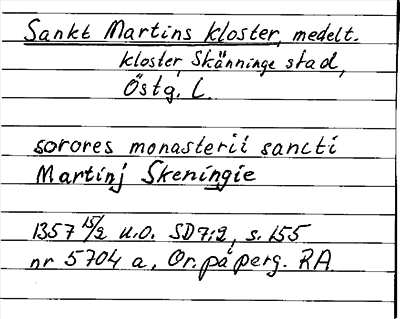 Sankt Martins kloster, medelt.
kloster, Skänninge stad,
Östg. L.
sorores monasterii sancti
Martinj Skeningie
1357 15/2 u.o. SD7:2, s. 155
nr 5704 a, Or. på perg. RA